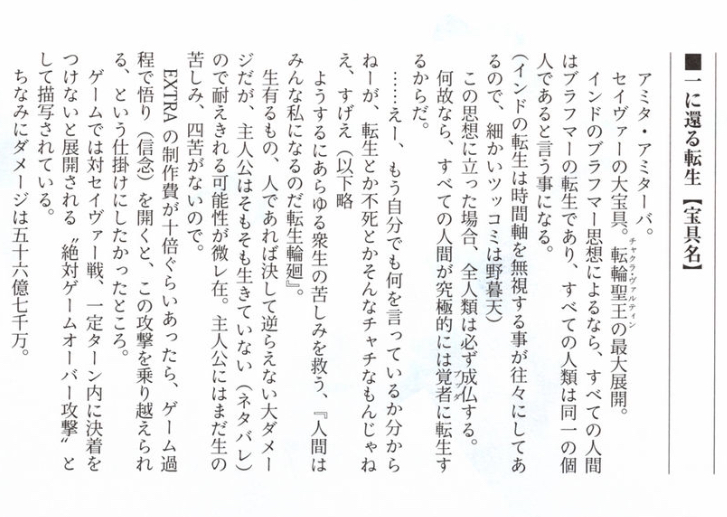 ■一に還る転生【宝具名】
アミタ・アミターバ。
セイヴァーの大宝具。転輪聖王の最大展開。
チャクラ・ヴァルティン
インドのブラフマー思想によるなら、すべての人間
はブラフマーの転生であり、すべての人類は同一の個
人であると言う事になる。
(インドの転生は時間軸を無視する事が往々にしてあ
るので、細かいツッコミは野暮天)
この思想に立った場合、全人類は必ず成仏する。
何故なら、すべての人間が究極的には覚者に転生す
ブッダ
るからだ。
……えー、もう自分でも何を言っているか分から
ねーが、転生とか不死とかそんなチャチなもんじゃね
え、すげえ(以下略
ようするにあらゆる衆生の苦しみを救う、『人間は
みんな私になるのだ転生輪廻』。
生有るもの、人であれば決して逆らえない大ダメー
ジだが、主人公はそもそも生きていない(ネタバレ)
ので耐えきれる可能性が微レ在。主人公にはまだ生の
苦しみ、四苦がないので。
EXTRAの制作費が十倍ぐらいあったら、ゲーム過
程で悟り(信念)を開くと、この攻撃を乗り越えられ
る、という仕掛けにしたかったところ。
ゲームでは対セイヴァー戦、一定ターン内に決着を
つけないと展開される〝絶対ゲームオーバー攻撃〟と
して描写されている。
ちなみにダメージは五十六億七千万。